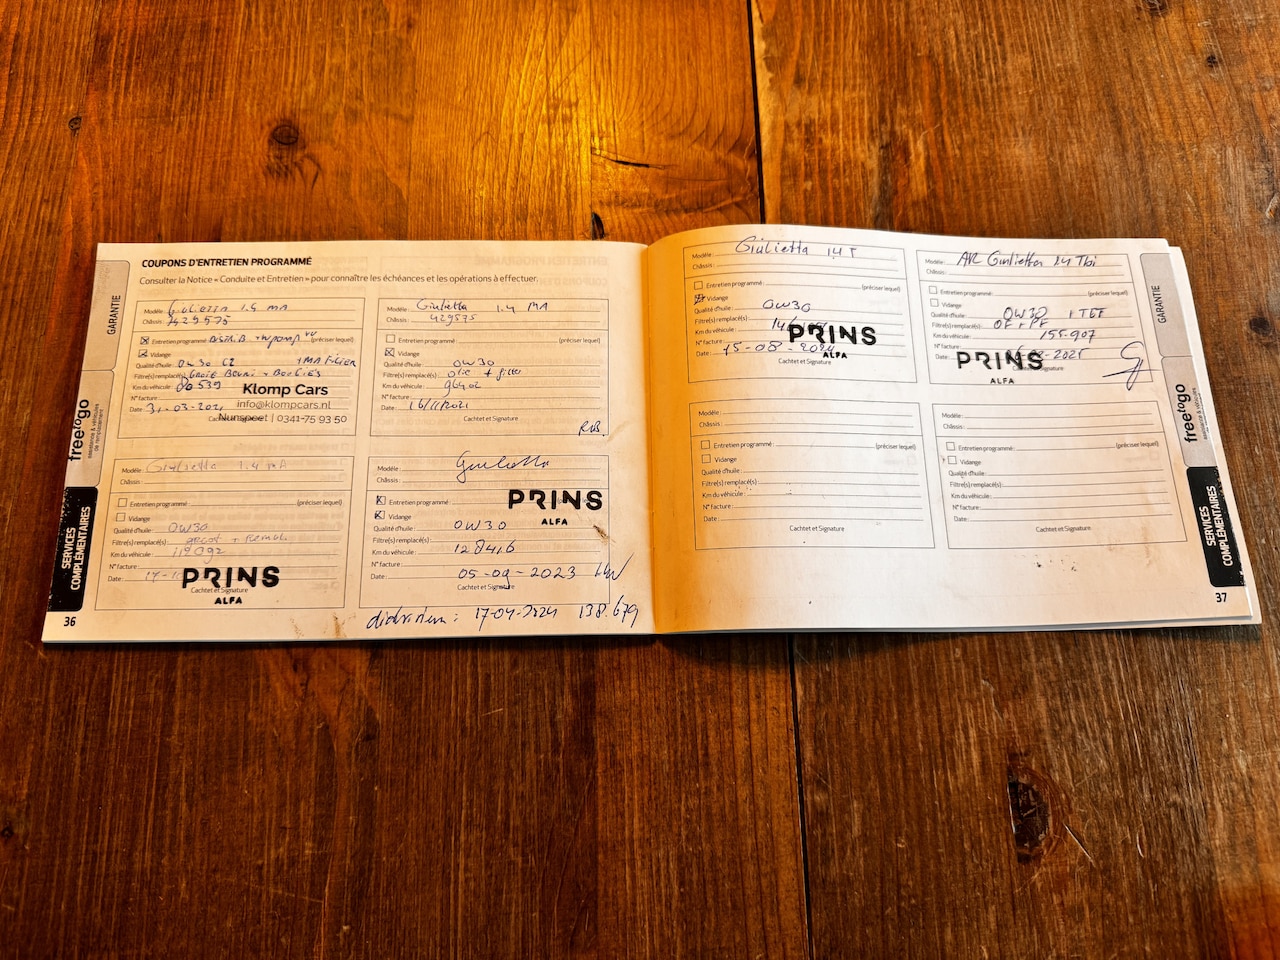 GARANTIE
COUPONS D'ENTRETIEN PROGRAMMÉ
Consulter la Notice « Conduite et Entretien » pour connaître les échéances et les opérations à effectuer.
Modèle: Giulietta 1.4 MA
Châssis: 7429575
Entretien programmé: DISTR.B + (préciser lequel)
Vidange
Qualité d'huile: 0W30 C2 +
Filtre(s) remplacé(s): + BOUGIES
Km du véhicule: 539
N° facture:
Date: 31-03-2021
Cachet et Signature
Klomp Cars
info@klompcars.nl
Nunspeet | 0341-75 93 50
Modèle: Giulietta 1.4 MA
Châssis: 429575
Entretien programmé: (préciser lequel)
Vidange
Qualité d'huile: 0W30
Filtre(s) remplacé(s): olie + filter
Km du véhicule: 96402
N° facture:
Date: 16/11/2021
Cachtet et Signature
Modèle: Giulietta 1.4 MA
Châssis:
Entretien programmé: (préciser lequel)
Vidange
Qualité d'huile: 0W30
Filtre(s) remplacé(s): groot +
Km du véhicule: 112092
N° facture:
Date: 17-
Cachtet et Signature
PRINS
ALFA
Modèle: Giulietta
Châssis:
Entretien programmé:
Vidange
Qualité d'huile: 0W30
Filtre(s) remplacé(s):
Km du véhicule: 128416
N° facture:
Date: 05-09-2023
Cachtet et Signature
PRINS
ALFA
17-04-2024 138.679
freetogo
assistance & véhicules
de remplacement
SERVICES
COMPLÉMENTAIRES
36
Modèle: Giulietta 1.4 T
Châssis:
Entretien programmé: (préciser lequel)
Vidange
Qualité d'huile: 0W30
Filtre(s) remplacé(s):
Km du véhicule:
N° facture:
Date: 15-08-2024
Cachtet et Signature
PRINS
ALFA
Modèle: AR Giulietta 1.4 Tbi
Châssis:
Entretien programmé: (préciser lequel)
Vidange
Qualité d'huile: 0W30
Filtre(s) remplacé(s): OF + PF
Km du véhicule: 155.907
N° facture:
Date: 2025
PRINS
ALFA
Modèle:
Châssis:
Entretien programmé: (préciser lequel)
Vidange
Qualité d'huile:
Filtre(s) remplacé(s):
Km du véhicule:
N° facture:
Date:
Cachtet et Signature
Modèle:
Châssis:
Entretien programmé: (préciser lequel)
Vidange
Qualité d'huile:
Filtre(s) remplacé(s):
Km du véhicule:
N° facture:
Date:
Cachtet et Signature
GARANTIE
freetogo
assistance & véhicules
de remplacement
SERVICES
COMPLÉMENTAIRES
37